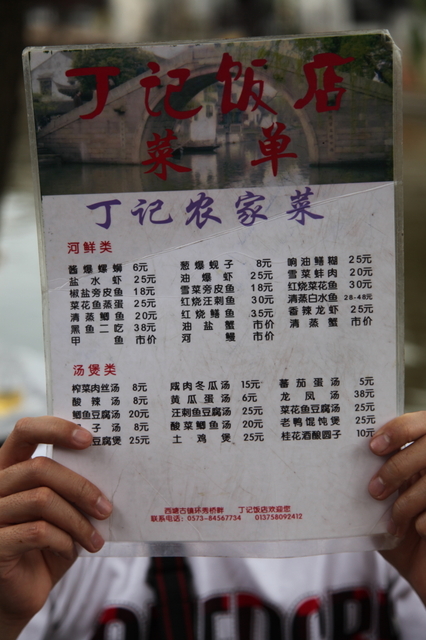 丁记饭店
菜单
丁记农家菜
河鲜类
酱爆螺蛳 6元 葱爆蚬子 8元 响油鳝糊 25元
盐水虾 25元 油爆虾 25元 雪菜蚌肉 20元
椒盐旁皮鱼 18元 雪菜旁皮鱼 18元 红烧菜花鱼 30元
菜花鱼蒸蛋 25元 红烧汪刺鱼 30元 清蒸白水鱼 28-48元
清蒸鳊鱼 20元 红烧鳝鱼 35元 香辣龙虾 25元
黑鱼二吃 38元 油盐蟹 市价 清蒸蟹 市价
甲鱼 市价 河鳗 市价
汤煲类
榨菜肉丝汤 8元 咸肉冬瓜汤 15元 蕃茄蛋汤 5元
酸辣汤 8元 黄瓜蛋汤 6元 龙凤汤 38元
鲫鱼豆腐汤 20元 汪刺鱼豆腐汤 25元 菜花鱼豆腐汤 25元
子汤 8元 酸菜鲫鱼汤 20元 老鸭馄饨煲 25元
豆腐煲 25元 土鸡煲 25元 桂花酒酿圆子 10元
西塘古镇环秀桥畔 丁记饭店欢迎您
联系电话：0573-84567734 013758092412